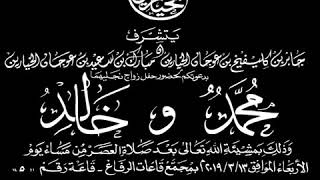 يتشرف
جابر بن كليفيخ بن عوجان الخيارين مبارك بن سعيد بن عوجان الخيارين
بدعوتكم لحضور حفل زواج نجليهما
محمد و خالد
وذلك بمشيئة الله تعالى بعد صلاة العصر من مساء يوم
الأربعاء الموافق ٢٠١٩/٣/١٣ بمجمع قاعات الرفاع - قاعة رقم «٥»